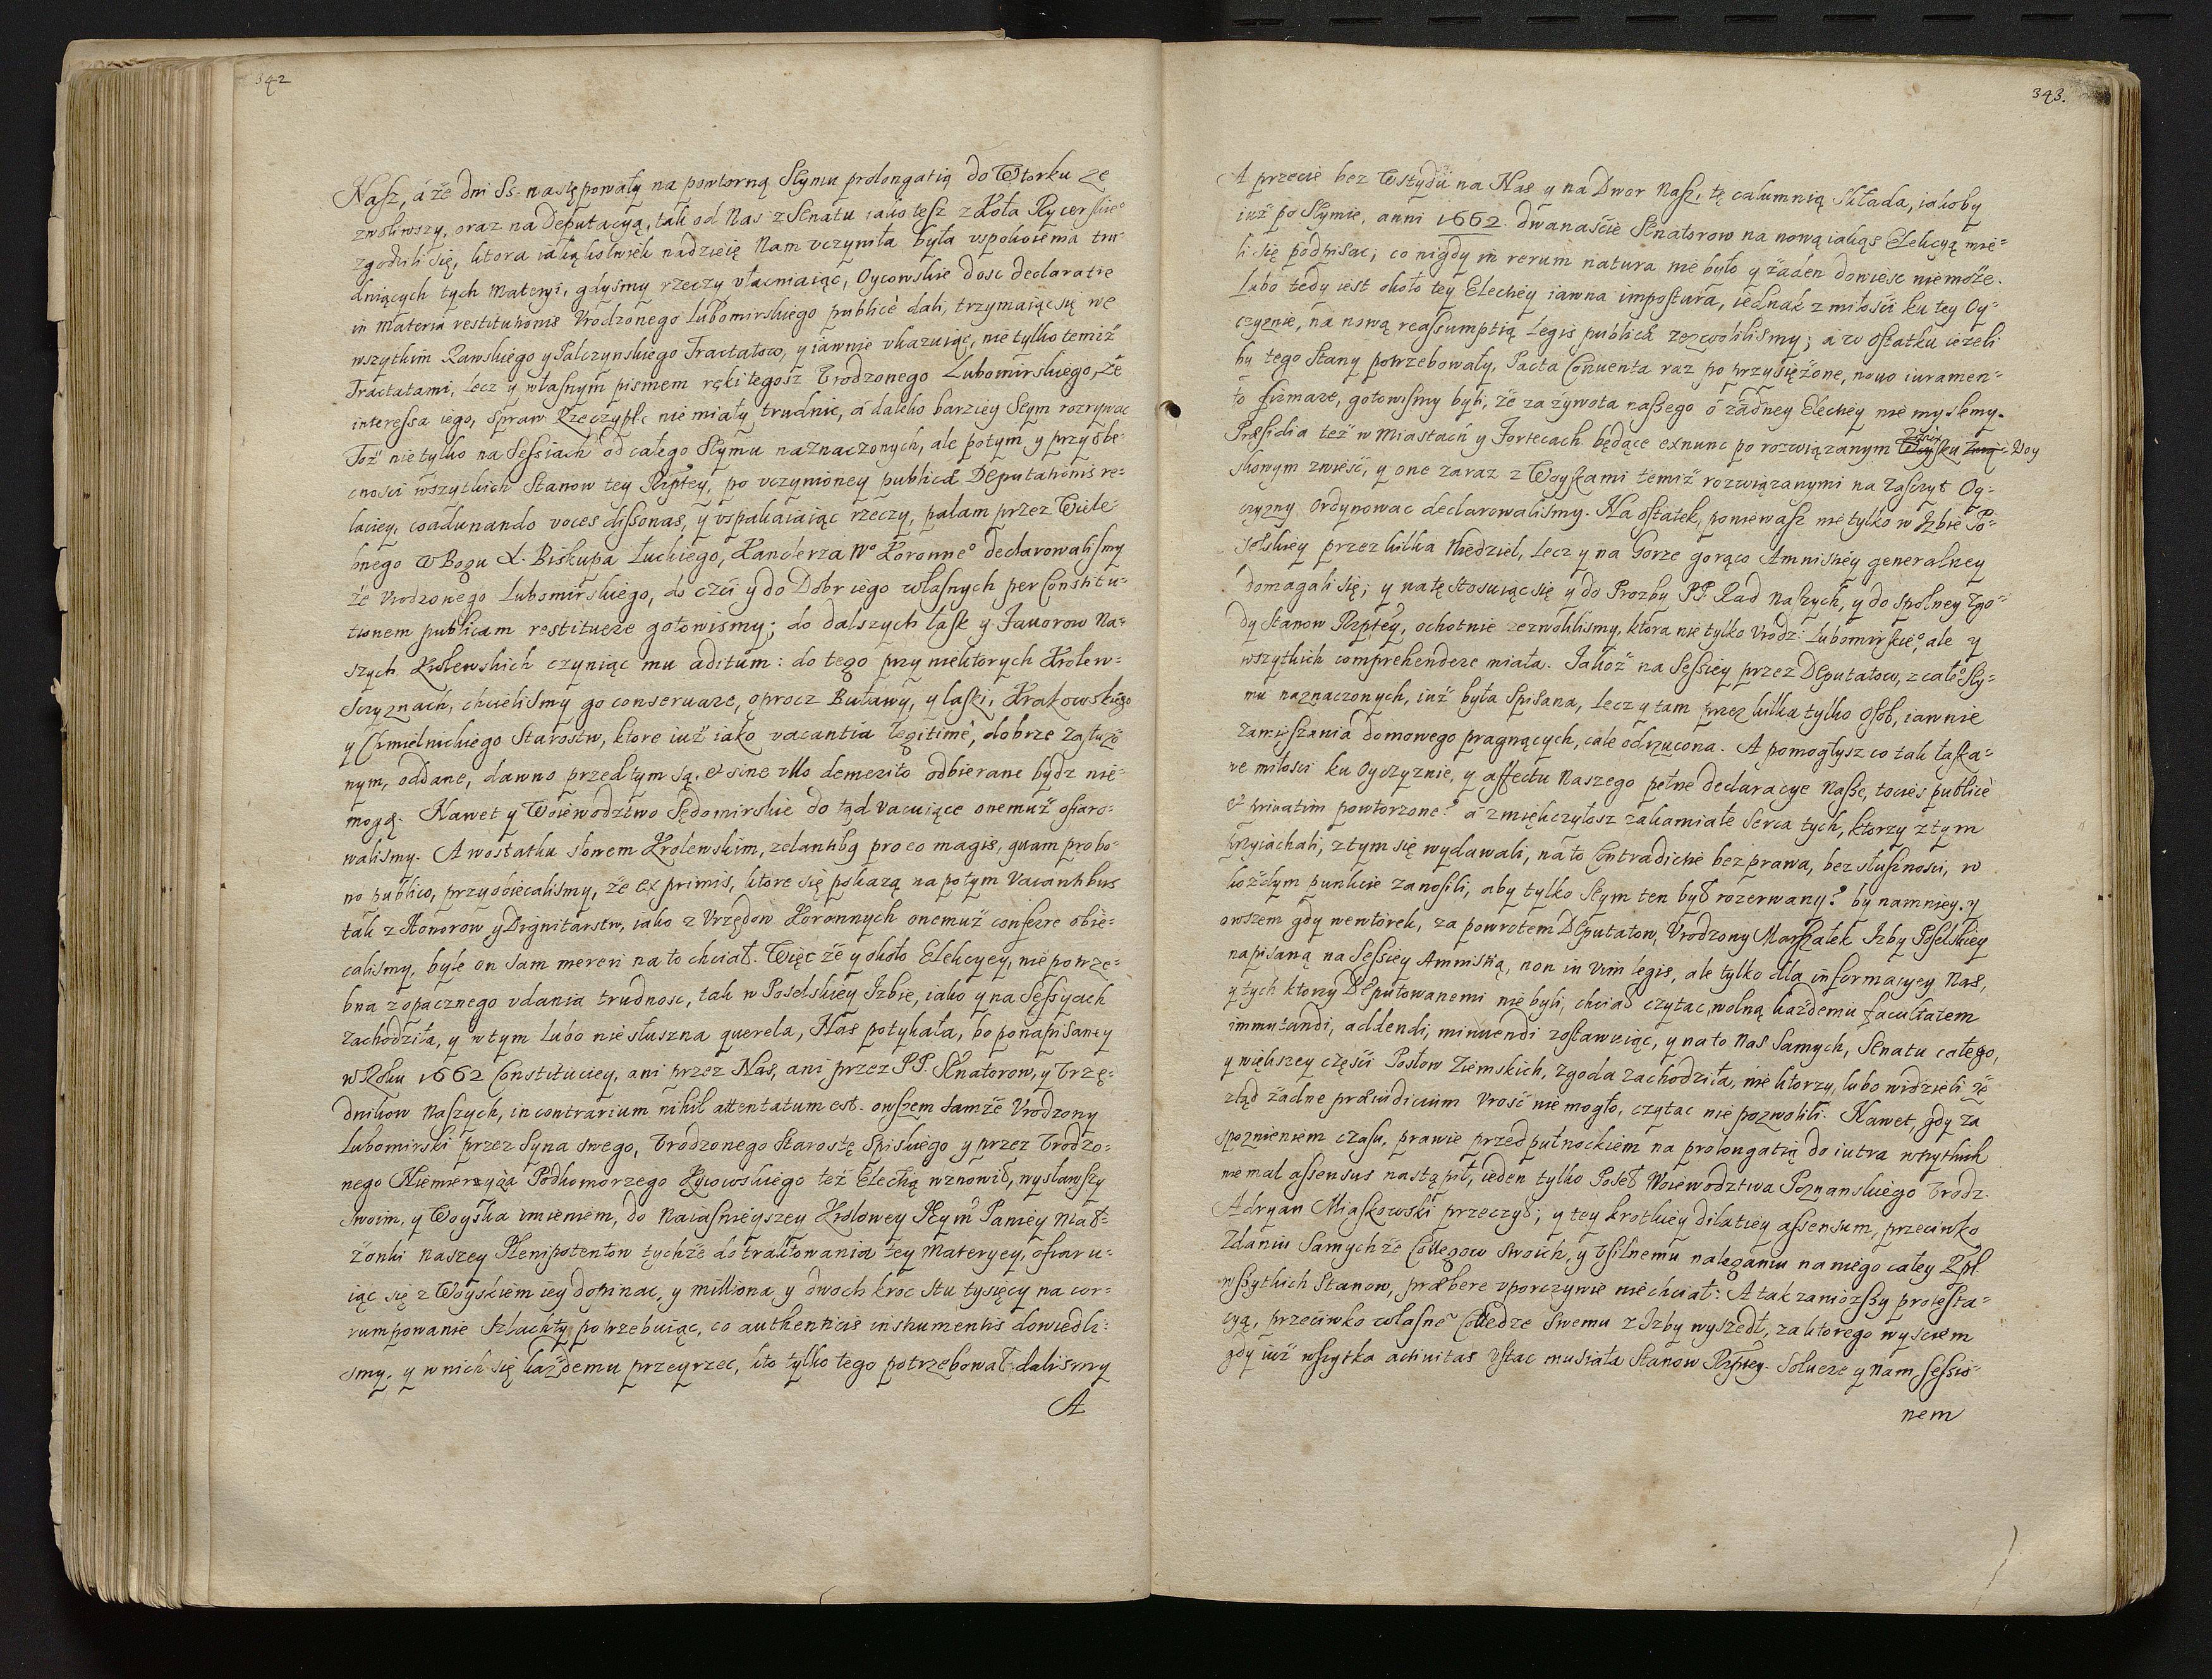 342
Nasz, á że dni SS. następowały na powtorną Seymu prolongatią do Wtorku ze
zwoliwszy, oraz na Deputacyą, tak od Nas z Senatu iako tesz z Koła Rycerskieº
zgodzili się, ktora iakążkolwiek nadzieię Nam vczyniła była vspokoienia tru=
dniących tych Materyi, gdysmy rzeczy vłacniaiąc, Oycowskie dosc declaratie
in Materia restitutionis Vrodzonego Lubomirskiego publicè dali, trzymaiąc się we
wszytkim Rawskiego y Palczynskiego Tractatow, y iawnie vkazuiąc, nie tylko temiż
Tractatami, lecz y własnym pismem ręki tegosz Vrodzonego Lubomirskiego, że
interessa iego, Spraw Rzeczyplt. nie miały trudnic, á daleko barziey Seym rozrywac
Toż nie tylko na Sessiach od całego Seymu naznaczonych, ale potym y przy obe=
cnosci wszytkich Stanow tey Rzptey, po vczynioney publicæ Deputationis re=
laciey, coadunando voces dissonas, y vspakaiaiąc rzeczy, palam przez Wiele=
bnego w Bogu X. Biskupa Łuckiego, Kanclerza Wº Koronneº declarowalismy
że Vrodzonego Lubomirskiego, do czci y do Dobr iego własnych per Constitu=
tionem publicam restituere gotowismy; do dalszych łask y Fauorow Na=
szych Krolewskich czyniąc mu aditum: do tego przy niektorych Krolew=
sczyznach, chcielismy go conseruare, oprocz Buławy, y laski, Krakowskiego
y Chmielnickiego Starostw, ktore iuż iako vacantia legitimè, dobrze zasłużo
nym, oddane, dawno przedtym są, et sine vllo demerito odbierane bydz nie=
mogą. Nawet y Woiewodztwo Sędomirskie do tąd vacuiące onemuż ofiaro=
walismy. A w ostatku słowem Krolewskim, zelantibq pro eo magis, quam pro bo=
no publico, przyobiecalismy, że ex primis, ktore się pokażą na potym Vacantibus
tak z Honorow y Dignitarstw, iako z Vrzędow Koronnych onemuż conferre obie=
calismy, byle on sam mereri na to chciał. Więc że y około Elekcyey, nie potrze=
bna z opacznego vdania trudnosc, tak w Poselskiey Izbie, iako y na Sessyach
zachodziła, y w tym lubo nie słuszna querela, Nas potykała, bo po napisaney
w Roku 1662 Constituciey, ani przez Nas, ani przez PP. Senatorow, y Vrzę=
dnikow Naszych, in contrarium nihil attentatum est. owszem samże Vrodzony
Lubomirski przez Syna swego, Vrodzonego Starostę Spiskiego y przez Vrodzo=
nego Niemierzyca Podkomorzego Kyiowskiego też Electią wznowił, wysławszy
swoim, y Woyska imieniem, do Naiasnieyszey Krolowey Jeym Paniey Mał=
żonki naszey Plenipotentow tychże do traktowania tey Materyey, ofiaru=
iąc się z Woyskiem iey dopinac, y milliona y dwoch kroc stu tysięcy na cor=
rumpowanie Szlachty potrzebuiąc, co authenticis instrumentis dowiedli=
smy. y w nich się każdemu przeyrzec, kto tylko tego potrzebował dalismy
A
343.
A przecie bez Wstydu na Nas y na Dwor Nasz, tę calumnią składa, iakoby
iuż po Seymie, anni 1662. dwanaście Senatorow na nową iakąs Elekcyą mie=
li się podpisac; co nigdy in rerum natura nie było y żaden dowiesc nie może.
Lubo tedy iest około tey Electiey iawna impostura, iednak z miłości ku tey Oy=
czyznie, na nową reassumptią Legis publicæ zezwolilismy; a w ostatku ieżeli
by tego Stany potrzebowały, Pacta Conuenta raz poprzysiężone, nouo iuramen=
to firmare, gotowismy byli, że za żywota naszego o żadney Electiey nie myslemy.
Præsidia też w Miastach y Fortecach będące exnunc po rozwiązanym Woy
skowym zwieść, y one zaraz z Woyskami temiż rozwiązanymi na zasczyt Oy=
czyzny, ordynowac declarowalismy. Na ostatek, poniewasz nie tylko w Izbie Po=
selskiey przez kilka Niedziel, lecz y na Gorze gorąco Amnistiey generalney
domagali się; y na tę stosuiąc się y do Prozby PP. Rad Naszych, y do spolney zgo=
dy Stanow Rzptey, ochotnie zezwolilismy, ktora nie tylko Vrodz: Lubomirskieº, ale y
wszytkich comprehendere miała. Jakoż na Sessiey przez Deputatow, z całeº Sey=
mu naznaczonych, iuż była Spisana, lecz y tam przez kilka tylko osob, iawnie
zamieszania domowego pragnących, cale odrzucona. A pomogłysz co tak łaska=
we miłosci ku Oyczyznie, y affectu Naszego pełne declaracye Nasze, toties publicè
et priuatim powtorzone? á zmiękczyłosz zakamiałe serca tych, ktorzy z tym
przyiachali, z tym się wydawali, na to Contradictie bez prawa, bez słusznosci, w
każdym punkcie zanosili, aby tylko Seym ten był rozerwany? by namniey. y
owszem gdy we wtorek, za powrotem Deputatow, Vrodzony Marszałek Izby Poselskiey
napisaną na Sessiey Amnistią, non in vim legis, ale tylko dla informacyey Nas,
y tych ktorzy Deputowanemi nie byli, chciał czytac, wolną każdemu facultatem
immutandi, addendi, minuendi zostawuiąc, y na to Nas Samych, Senatu całego,
y większey części Posłow Ziemskich, zgoda zachodziła, nie ktorzy, lubo widzieli że
ztąd żadne præiudicium vrość nie mogło, czytac nie pozwolili. Nawet, gdy za
spoznieniem czasu, prawie przed pułnockiem na prolongatią do iutra wszytkich
niemal assensus nastąpił, ieden tylko Poseł Woiewodztwa Poznanskiego Vrodz.
Adryan Miaskowski przeczył; y tey krotkiey dilatiey assensum, przeciwko
Zdaniu samychże Collegow swoich, y vsilnemu naleganiu na niego całey Rzpl.
wszytkich Stanow, præbere vporczywie nie chciał: A tak zaniozszy protesta=
cyą, przeciwko własneº Colledze swemu z Izby wyszedł, za ktorego wysciem
gdy iuż wszytka actiuitas vstac musiała Stanow Rzptey. Soluere y nam sessio=
nem